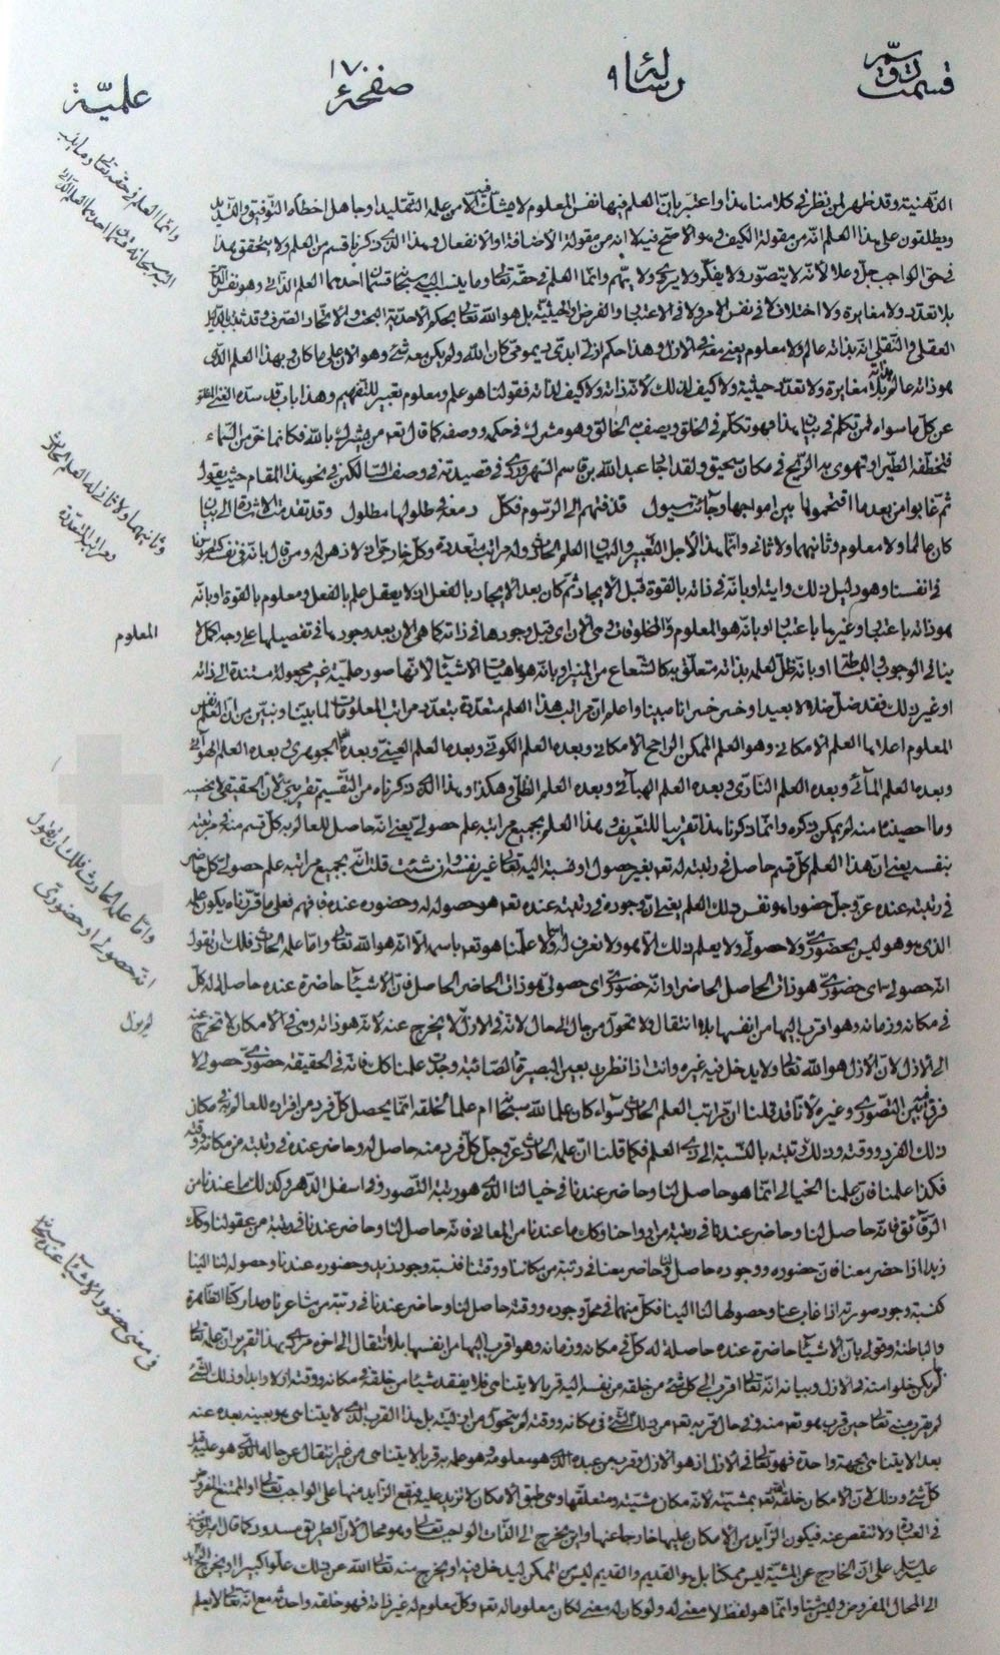 قسمت دوّم
رسالهٔ ٩
صفحهٔ ١٧٠
علميّة
الذهنية وقد ظهر لمن نظر في كلامنا هذا واعتبر بانّ العلم فيها نفس المعلوم لا يشك فيه الا من علمه التقليد او جاهل اخطأه التوفيق والتسديد
ويطلقون على هذا العلم انّه من مقولة الكيف وهو الاصح فيه لا انه من مقولة الاضافة والانفعال وهذا الذي ذكرنا قسم من العلم ولا يتحقق هذا
في حق الواجب جلّ وعلا لانّه لا يتصوّر ولا يفكّر ولا يروّي ولا يهمّ وانّما العلم في حقه تعالى وما ينسب اليه سبحانه قسمان احدهما العلم الذاتي وهو نفس الذات
بلا تعدّد ولا مغايرة ولا اختلاف لا في نفس الامر ولا في الاعتبار والفرض والحيثيّة بل هو الله تعالى بحكم الاحديّة البحت والاتحاد الصرف وقد ثبت بالدليل
العقلي والنقلي انّه بذاته عالم ولا معلوم يعني معه في الازل وهذا حكم ازلي ابدي ديمومي كان الله ولم يكن معه شيء وهو الآن على ما كان وبهذا العلم الذي
هو ذاته عالم بذاته بلا مغايرة ولا تعدّد حيثية ولا كيف لذلك لانّه ذاته ولا كيف لذاته فقولنا هو علم ومعلوم تعبير للتفهيم وهذا باب قد سدّه الغني المطلق
عن كل ما سواه فمن تكلم في بيان هذا فهو تكلّم في الخلق ويصف به الخالق وهو مشرك في حكمه ووصفه كما قال تعالى ومن يشرك بالله فكانما خرّ من السّماء
فتخطفه الطّير او تهوي به الرّيح في مكان سحيق ولقد اجاد عبد الله بن قاسم السهروردي في قصيدته في وصف السالكين في نحو هذا المقام حيث يقول
ثم غابوا من بعد ما اقتحموها بين امواجها وجائت سيول قذفتهم الى الرّسوم فكلّ دمعه في طلولها مطلول وقد تقدمت الاشارة الى بيان
كان عالما ولا معلوم وثانيهما ولا ثاني وانّما هذا لاجل التعبير والبيان العلم الحادث وله مراتب متعددة وكلّ خارج عن ذاته لا ذهن له ومن قال بانّه في نفسه كهو
في انفسنا وهو دليل ذلك وايته او بانّه في ذاته بالقوة قبل الايجاد ثم كان بعد الايجاد بالفعل ان لا يعقل علم بالفعل ومعلوم بالقوة او بانّه
هو ذاته باعتبار وغيرها باعتبار او بانّه هو المعلوم والمخلوقات وهي الآن اي قبل وجودها في ذاته كما هي الآن بعد وجودها في تفصيلها على وجه كمال لا
ينافي الوجوب والبساطة او بانّه ظلّ لعلمه بذاته متعلق به كالشعاع من المنير او بانه هو ماهيات الاشياء لانها صور علميّة غير مجعولة مستندة الى ذاته
او غير ذلك فقد ضلّ ضلالا بعيدا وخسر خسرانا مبينا واعلم ان مراتب هذا العلم متعددة بتعدد مراتب المعلومات لما بيّنا ونبيّن من انّ العلم نفس
المعلوم اعلاها العلم الامكاني وهو العلم الممكن الراجح الامكاني وبعده العلم الكوني وبعده العلم العيني وبعده العلم الجوهري وبعده العلم الهوائي
وبعده العلم المائي وبعده العلم الناري وبعده العلم الهبائي وبعده العلم الظلّي وهكذا وهذا الذي ذكرناه من التقسيم تقريبي لان الحقيقي لا يحصيه
وما احصينا منه لم يمكن ذكره وانّما ذكرنا هذا تقريبا للتعريف وهذا العلم بجميع مراتبه علم حصولي يعني انّه حاصل للعالم به كل قسم منه في مرتبته
بنفسه يعني انّ هذا العلم كل قسم حاصل في رتبته له تعالى بغير حصول او نسبة اليه تعالى غير نفسه وان شئت قلت انّه بجميع مراتبه علم حصولي كل حاضر
في رتبته عنده عز وجل حضورا هو نفس ذلك العلم يعني ان وجوده في رتبته عنده تعالى هو حصوله له وحضوره عنده فافهم فعلى ما قرّرناه يكون علمه
الذي هو هو ليس بحضوريّ ولا حصولي ولا يعلم ذلك الا هو ولا نعرف له اسما ولا علمنا هو تعالى باسمه الا انّه هو الله تعالى وامّا علمه الحادث فلك ان تقول
انّه حصولي اي حضوري هو ذات الحاصل الحاضر وانّه حضوريّ اي حصولي هو ذات الحاضر الحاصل فانّ الاشياء حاضرة عنده حاصلة له كلّ
في مكانه وزمانه وهو اقرب اليها من انفسها بلا انتقال ولا تحوّل من حال الى حال لانه في الازل لا يخرج عنه لانّه هو ذاته وهي في الامكان لا تخرج عنه
الى الازل لانّ الازل هو الله تعالى ولا يدخل فيه غيره وانت اذا نظرت بعين البصيرة الصّائبة وجدت علمنا كذلك فانّه في الحقيقة حضوريّ حصولي لا
فرق بين التصوّري وغيره لانّا قد قلنا انّ مراتب العلم الحادث سواء كان علما لله سبحانه ام علما لخلقه انّما يحصل كلّ فرد من افراده للعالم به في مكان
ذلك الفرد ووقته وذلك رتبته بالنّسبة الى ذي العلم فكما قلنا انّ علمه الحادث عزّ وجل كلّ فرد منه حاصل له وحاضر عنده في رتبته من مكانه ووقته
فكذا علمنا فانّ علمنا الخيالي انّما هو حاصل لنا وحاضر عندنا في خيالنا الذي هو رتبة التصور وهو اسفل الدّهر وكذلك ما عندنا من
الرّقائق فانّه حاصل لنا وحاضر عندنا في رتبته من ارواحنا وكذا ما عندنا من المعاني فانّه حاصل لنا وحاضر عندنا في رتبته من عقولنا وكذلك
زيد اذا حضر معنا فانّ حضوره ووجوده حاصل لنا وحاضر معنا في رتبته من مكاننا ووقتنا فنسبة وجود زيد وحضوره عندنا وحصوله لنا الينا
كنسبة وجود صورته اذا غاب عنا وحصولها لنا الينا فكلّ منهما في محل وجوده ووقته حاصل لنا وحاضر عندنا في رتبته من مشاعرنا ومداركنا الظاهرة
والباطنة وقولي بانّ الاشياء حاضرة عنده حاصلة له كلّ في مكانه وزمانه وهو اقرب اليها من انفسها بلا انتقال الى اخره مرادي بهذا تقرير انّ علمه تعالى
لم يكن خلوا منه في الازل وبيانه انّه تعالى اقرب الى كل شيء من خلقه من نفسه اليه قربا لا يتناهى فلا يفقد شيئا من خلقه في مكانه ووقته ازلا وابدا وذلك الشيء
لم يقرب منه تعالى حين قرب هو تعالى منه وفي حال قربه تعالى من ذلك الشيء في مكانه ووقته لم يتحول من ازليّته بل هذا القرب الذي لا يتناهى هو بعينه بعده عنه
بعدا لا يتناهى بجهة واحدة فهو تعالى في الازل اذ هو الازل وقرب من عبده الذي هو معلومه وهو علمه به قربا لا يتناهى من غير انتقال عن حاله الذي هو عليه قبل
كل شيء وذلك لانّ الامكان خلقه الله تعالى بمشيّته لانّه مكان مشيّته ومتعلّقها وهي طبق الامكان لا تزيد عليه فيقع الزايد منها على الواجب تعالى او الممتنع المفروض
في العبارة ولا تنقص عنه فيكون الزّايد من الامكان عليها خارجا عنها واين يخرج الى الذات الواجب تعالى وهو محال لانّ الطريق مسدود كما قال امير المؤمنين
عليه السّلام على انّ الخارج عن المشيّة ليس ممكنا بل هو القديم والقديم ليس من الممكن ليدخل فيه او يخرج منه تعالى الله عن ذلك علوا كبيرا او يخرج الى
الى المحال المفروض وليس شيئا وانّما هو لفظ لا معنى له ولو كان له معنى لكان معلوما له تعالى وكل معلوم له غير ذاته فهو خلقه واحدثه مع انّه تعالى لا يعلم
وانّما العلم في حقه تعالى وما ينسب
اليه سبحانه قسمان احدهما العلم الذاتي
وثانيهما ولا ثاني له العلم الحادث
وله مراتب متعدّدة
المعلوم
وامّا علمه الحادث فلك ان تقول
انّه حصولي او حضوري
في معنى حضور الاشياء عنده سبحانه